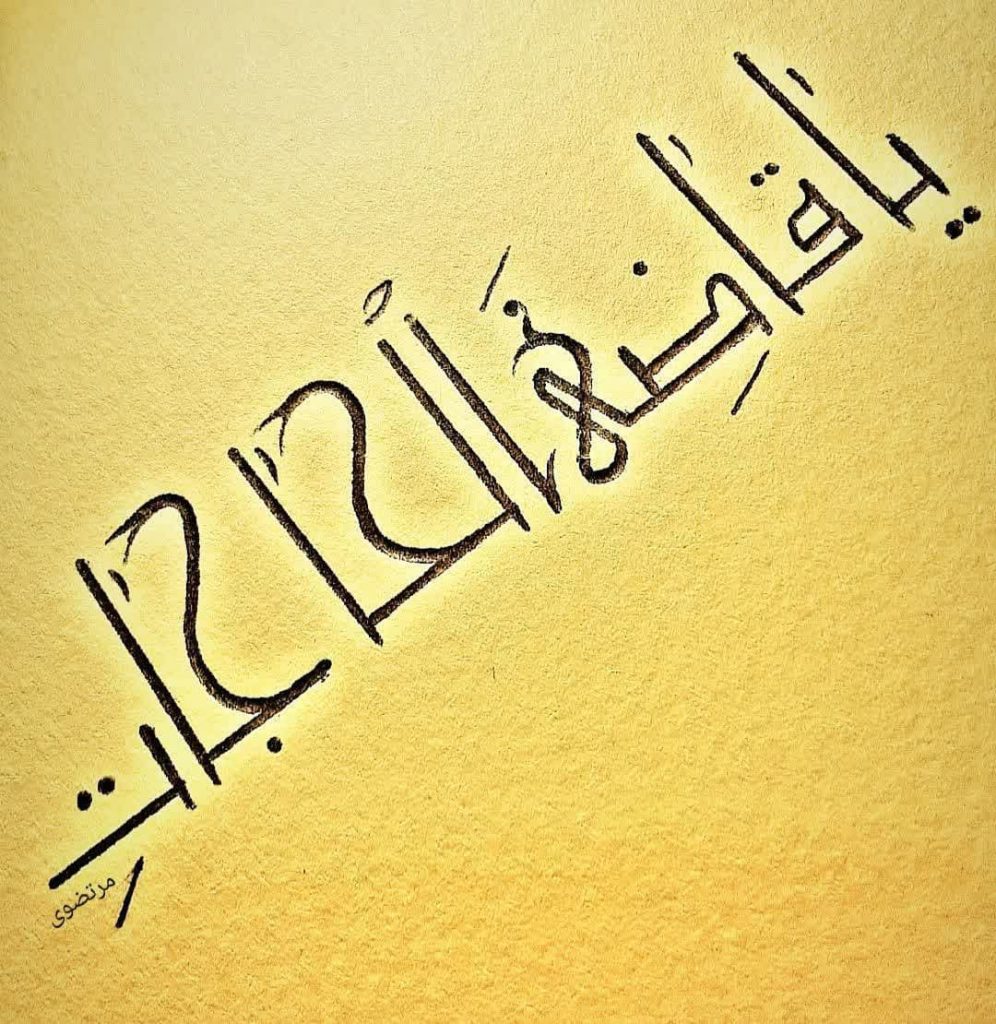 يَا قَاضِيَ الْحَاجَاتِ
مرتضوی